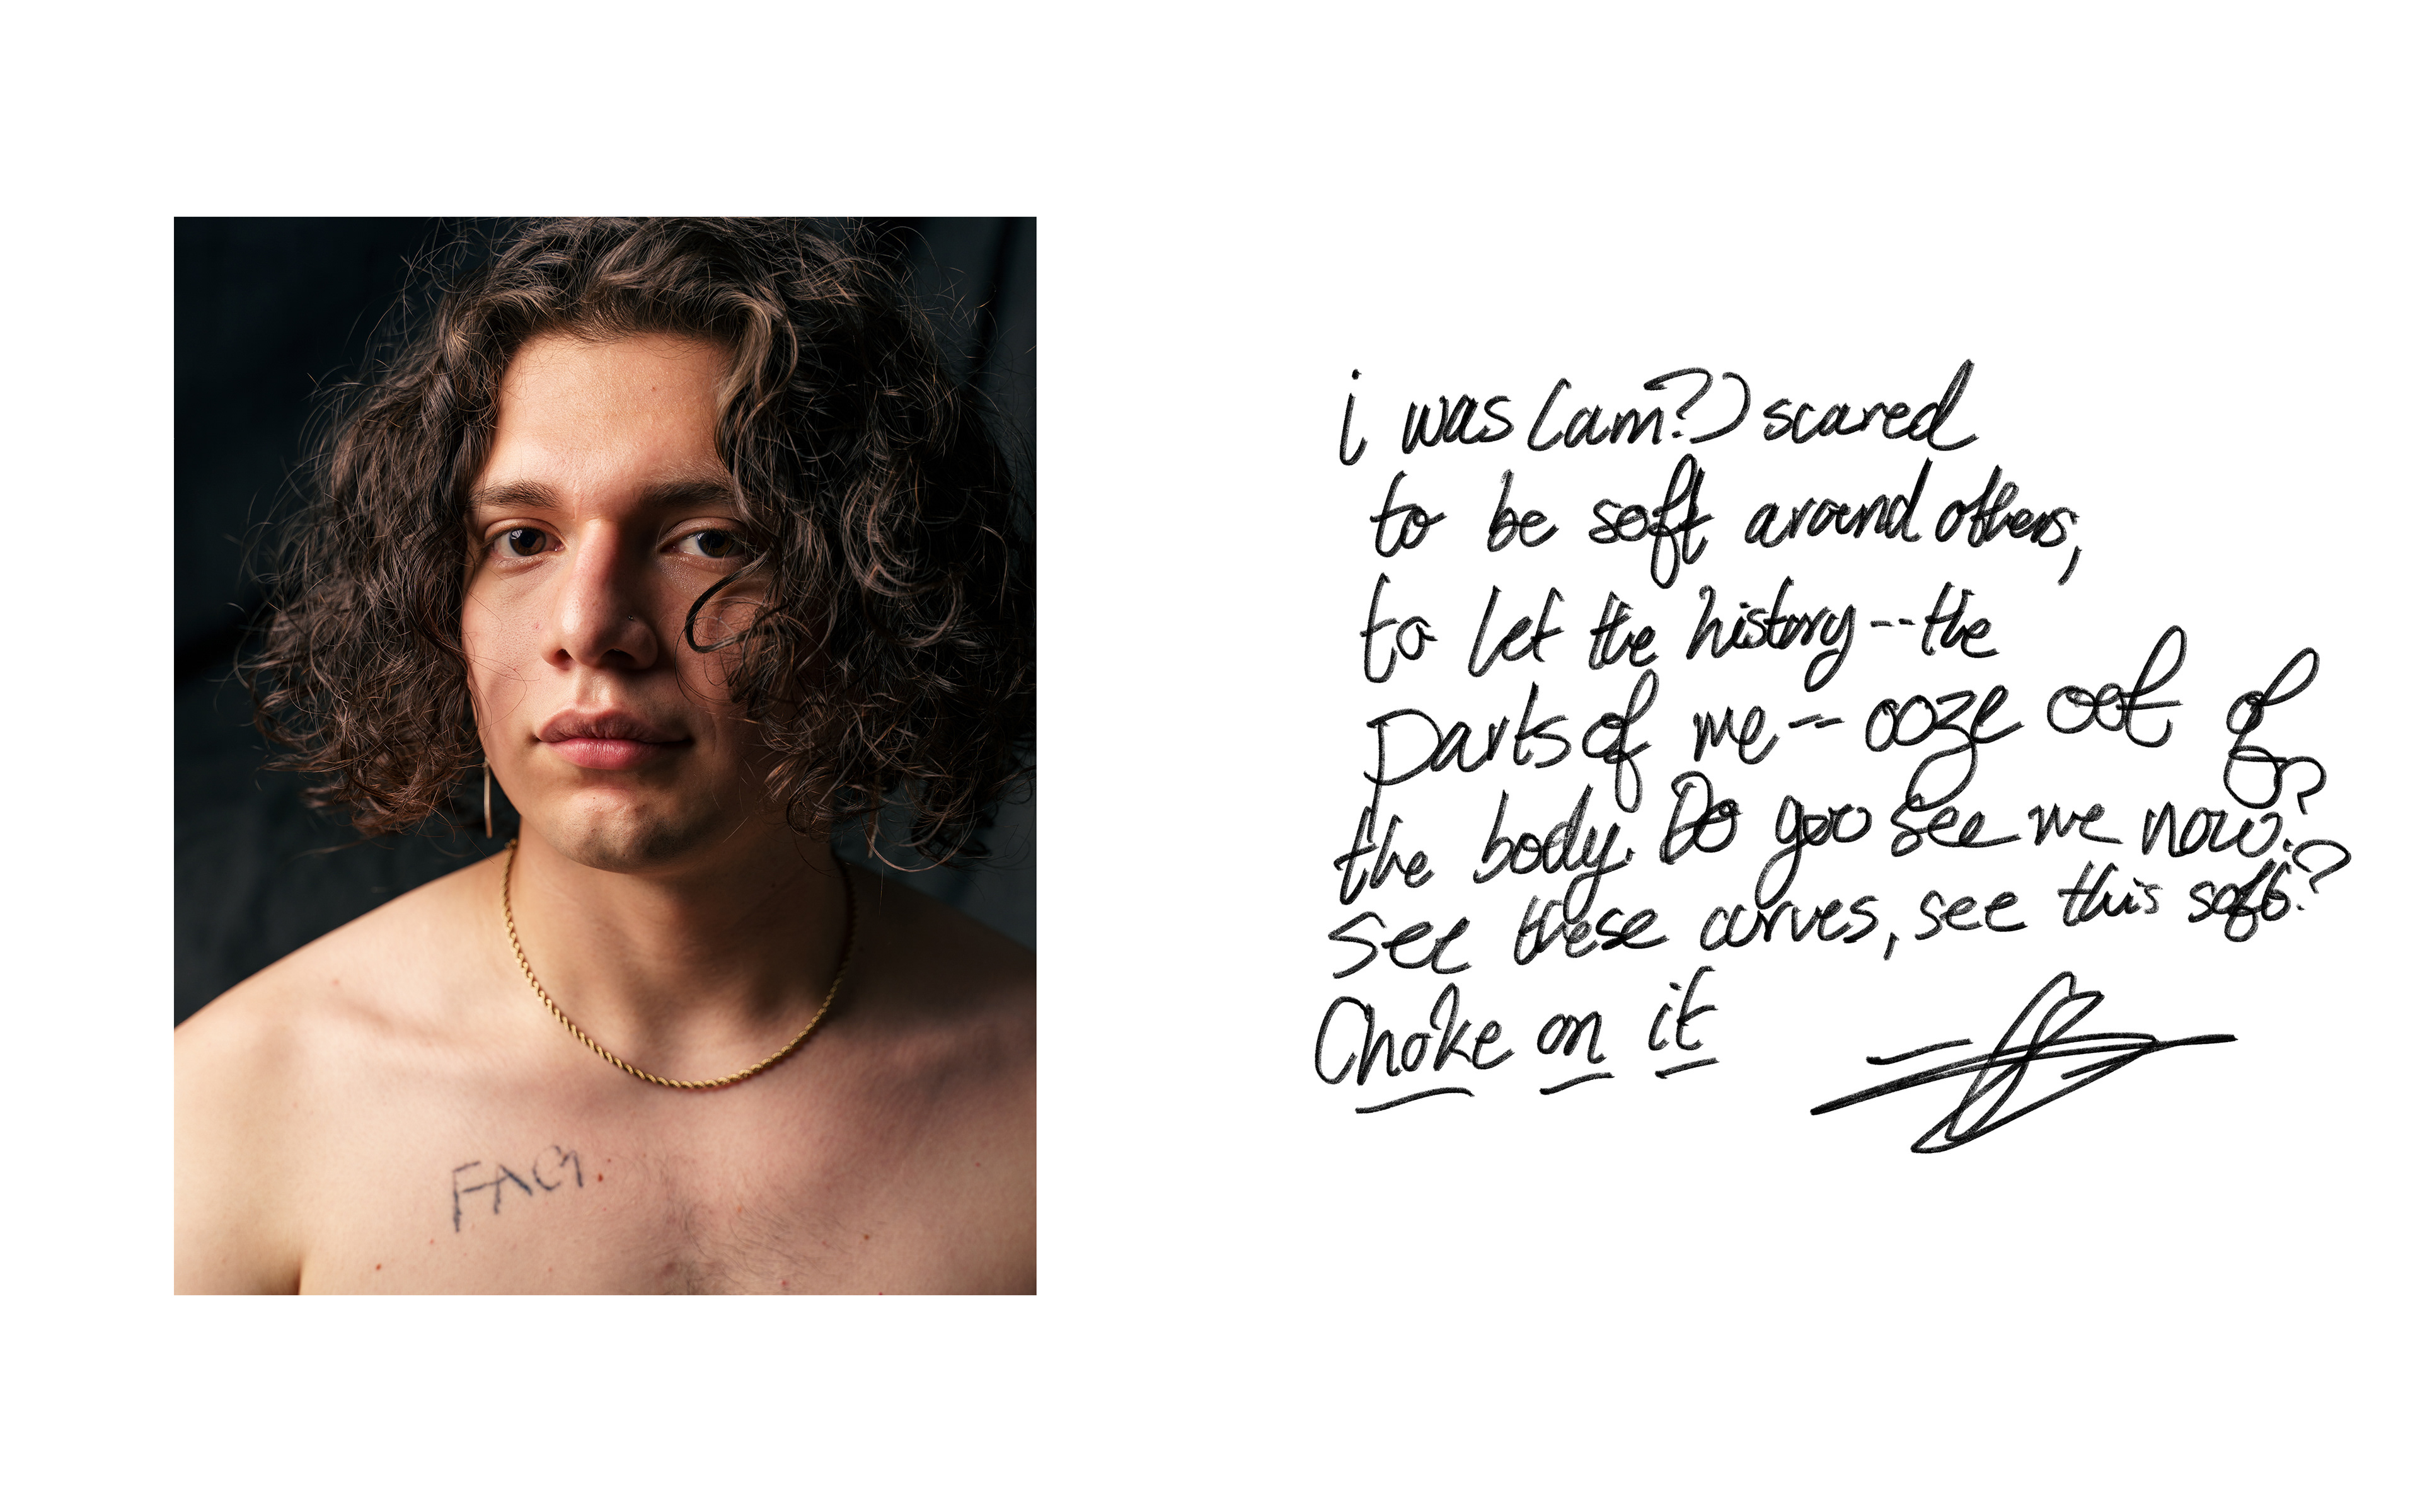 i was (am?) scared
to be soft around others,
to let the history--the
parts of me-- ooze out of
the body. Do you see me now?
see these curves, see this soft?
Choke on it